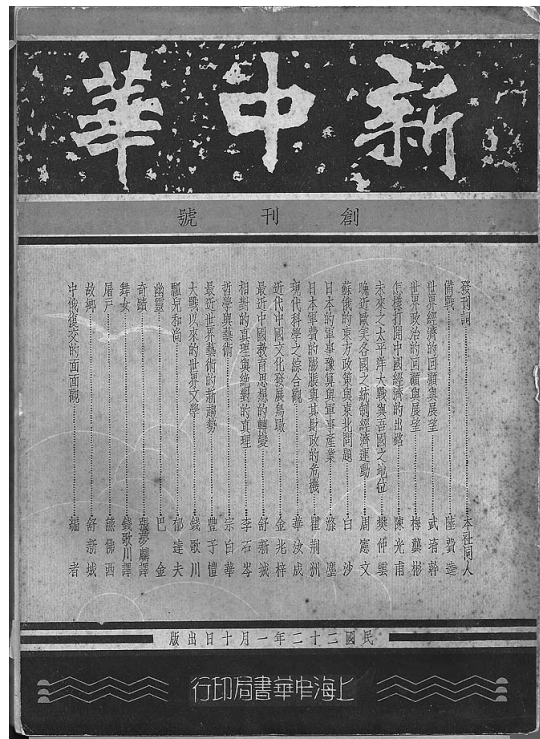 新中華
創刊號
發刊詞……本社同人
備戰……陸費逵
世界經濟的回顧與展望……武堉幹
世界政治的回顧與展望……梅龔彬
怎樣打開中國經濟的出路……陳光甫
未來之太平洋大戰與吾國之地位……樊仲雲
晚近歐美各國之統制經濟運動……周憲文
蘇俄的東方政策與東北問題……白沙
日本的軍事豫算與軍事產業……塵
日本軍費的膨脹與其財政的危機……瞿荊洲
現代科學之綜合觀……華汝成
近代中國文化發展鳥瞰……金兆梓
最近中國教育思想的轉變……舒新城
相對的真理與絕對的真理……李石岑
哲學與藝術……宗白華
最近世界藝術的新趨勢……豐子愷
大戰以來的世界文學……錢歌川
瓢兒和尚……郁達夫
幽靈……巴金
奇蹟……張夢麟譯
舞女……錢歌川譯
屠戶……熊佛西
故鄉……舒新城
中俄復交的面面觀……編者
民國二十二年一月十日出版
上海中華書局印行